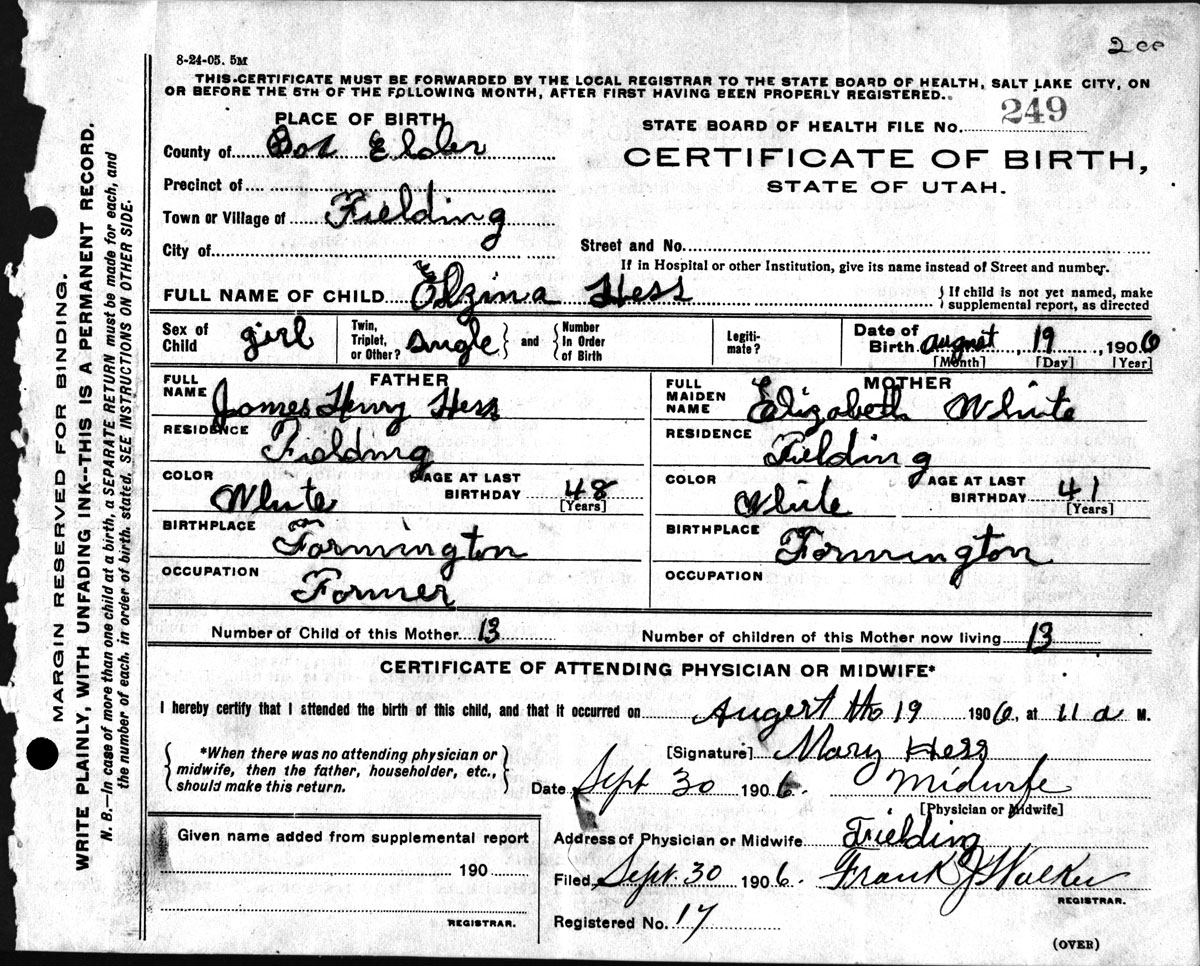 2cc
8-24-05. 5M
THIS CERTIFICATE MUST BE FORWARDED BY THE LOCAL REGISTRAR TO THE STATE BOARD OF HEALTH, SALT LAKE CITY, ON
OR BEFORE THE 5TH OF THE FOLLOWING MONTH, AFTER FIRST HAVING BEEN PROPERLY REGISTERED.
PLACE OF BIRTH
STATE BOARD OF HEALTH FILE No. 249
County of Box Elder
CERTIFICATE OF BIRTH,
STATE OF UTAH.
Precinct of
Town or Village of Fielding
City of
Street and No.
If in Hospital or other Institution, give its name instead of Street and number.
FULL NAME OF CHILD Elzina Hess
{ If child is not yet named, make
supplemental report, as directed
Sex of Child girl
Twin, Triplet, or Other? single } and { Number In Order of Birth
Legiti-mate?
Date of Birth august 19, 1906
[Month] [Day] [Year]
FATHER
FULL NAME James Henry Hess
RESIDENCE Fielding
COLOR White
AGE AT LAST BIRTHDAY 48
[Years]
BIRTHPLACE Formington
OCCUPATION Former
MOTHER
FULL MAIDEN NAME Elizabeth White
RESIDENCE Fielding
COLOR White
AGE AT LAST BIRTHDAY 41
[Years]
BIRTHPLACE Formington
OCCUPATION
Number of Child of this Mother 13
Number of children of this Mother now living 13
CERTIFICATE OF ATTENDING PHYSICIAN OR MIDWIFE*
I hereby certify that I attended the birth of this child, and that it occurred on Augert th 19 1906, at 11 a M.
{ *When there was no attending physician or
midwife, then the father, householder, etc.,
should make this return. }
[Signature] Mary Hess
Date Sept 30 1906. Midwife
[Physician or Midwife]
Given name added from supplemental report
190
REGISTRAR.
Address of Physician or Midwife Frielding
Filed Sept. 30 1906. Frank J Walker
REGISTRAR.
Registered No. 17
(OVER)
MARGIN RESERVED FOR BINDING.
WRITE PLAINLY, WITH UNFADING INK--THIS IS A PERMANENT RECORD.
N. B.--In case of more than one child at a birth, a SEPARATE RETURN must be made for each, and
the number of each, in order of birth, stated. SEE INSTRUCTIONS ON OTHER SIDE.